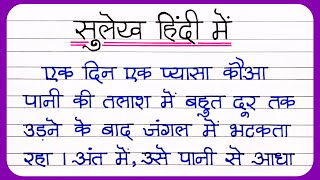 सुलेख हिंदी में
एक दिन एक प्यासा कौआ
पानी की तलाश में बहुत दूर तक
उड़ने के बाद जंगल में भटकता
रहा । अंत में, उसे पानी से आधा